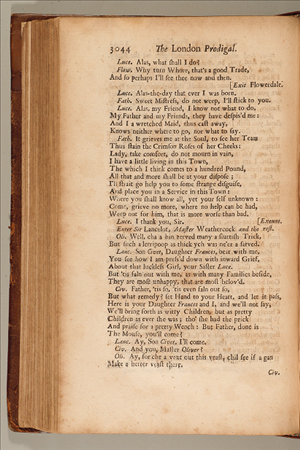 3044 The London Prodigal.
Luce. Alas, what shall I do?
Flow. Why turn Whore, that's a good Trade,
And so perhaps I'll see thee now and then.
[Exit Flowerdale.
Luce. Alas-the-day that ever I was born.
Fath. Sweet Mistress, do not weep, I'll stick to you.
Luce. Alas, my Friend, I know not what to do,
My Father and my Friends, they have despis'd me:
And I a wretched Maid, thus cast away,
Knows neither where to go, nor what to say.
Fath. It grieves me at the Soul, to see her Tears
Thus stain the Crimson Roses of her Cheeks:
Lady, take comfort, do not mourn in vain,
I have a little living in this Town,
The which I think comes to a hundred Pound,
All that and more shall be at your dispose;
I'll strait go help you to some strange disguise,
And place you in a Service in this Town:
Where you shall know all, yet your self unknown:
Come, grieve no more, where no help can be had,
Weep not for him, that is more worse than bad.
Luce. I thank you, Sir. [Exeunt.
Enter Sir Lancelot, Master Weathercock and the rest.
Oli. Well, cha a bin zerved many a sluttish Trick,
But such a lerripoop as thick ych was ne'er a sarved.
Lanc. Son Civet, Daughter Frances, bear with me,
You see how I am press'd down with inward Grief,
About that luckless Girl, your Sister Luce.
But 'tis faln out with me, as with many Families beside,
They are most unhappy, that are most belov'd.
Civ. Father, 'tis so, 'tis even faln out so,
But what remedy? set Hand to your Heart, and let it pass,
Here is your Daughter Frances and I, and we'll not say,
We'll bring forth as witty Children, but as pretty
Children as ever she was; tho' she had the prick
And praise for a pretty Wench: But Father, done is
The Mouse, you'll come?
Lanc. Ay, Son Civet, I'll come.
Civ. And you, Master Oliver?
Oli. Ay, for che a vext out this veast, chil see if a gan
Make a better veast there.
Civ.